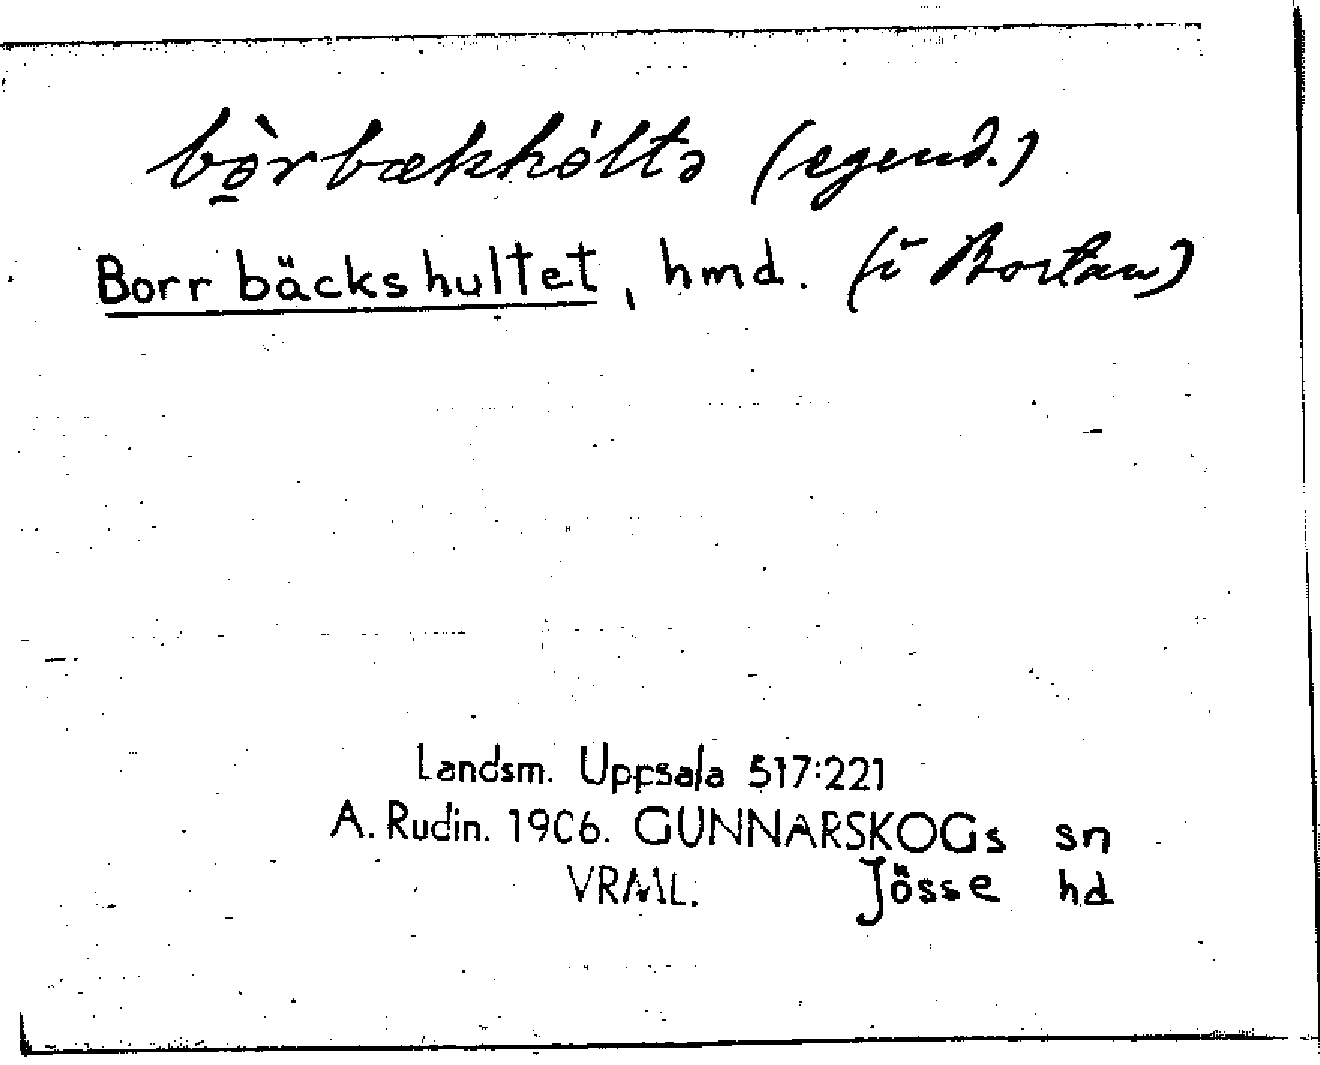 bȯ̱̀rbækkhȯ́ltə (egend.)
Borrbäckshultet, hmd. (i Bortan)
Landsm. Uppsala 517:221
A. Rudin. 1906. GUNNARSKOGs sn
VRML. Jösse hd